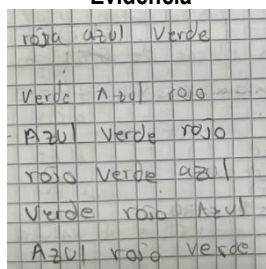 Evidencia
roja azul Verde
Verde Azul rojo
Azul Verde rojo
rojo Verde azul
Verde rojo Azul
Azul rojo verde